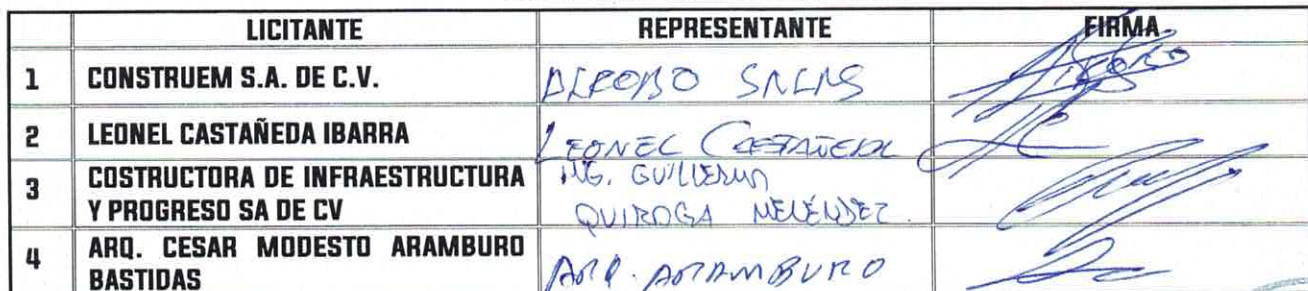 LICITANTE REPRESENTANTE FIRMA
1 CONSTRUEM S.A. DE C.V. SALAS
2 LEONEL CASTAÑEDA IBARRA LEONEL CASTAÑEDA
3 COSTRUCTORA DE INFRAESTRUCTURA Y PROGRESO SA DE CV ING. GUILLERMO
QUIROGA MELÉNDEZ.
4 ARQ. CESAR MODESTO ARAMBURO BASTIDAS ARQ. ARAMBURO